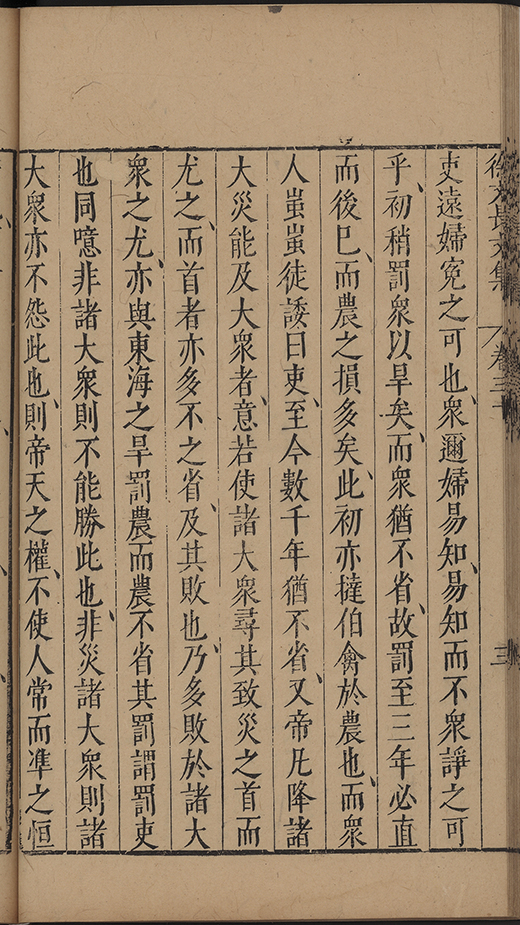 徐文長文集　卷三十　三
吏遠婦寃之可也、衆邇婦易知、易知而不衆諍之可
乎、初稍罰衆以旱矣、而衆猶不省、故罰至三年必直
而後已、而農之損多矣、此初亦撻伯禽於農也、而衆
人蚩蚩徒諉曰吏、至今數千年猶不省、又帝凡降諸
大災能及大衆者、意若使諸大衆尋其致災之首而
尤之、而首者亦多不之省、及其敗也、乃多敗於諸大
衆之尤、亦與東海之旱罰農而農不省其罰謂罰吏
也同噫非諸大衆則不能勝此也、非災諸大衆則諸
大衆亦不怨此也、則帝天之權、不使人常而準之恒